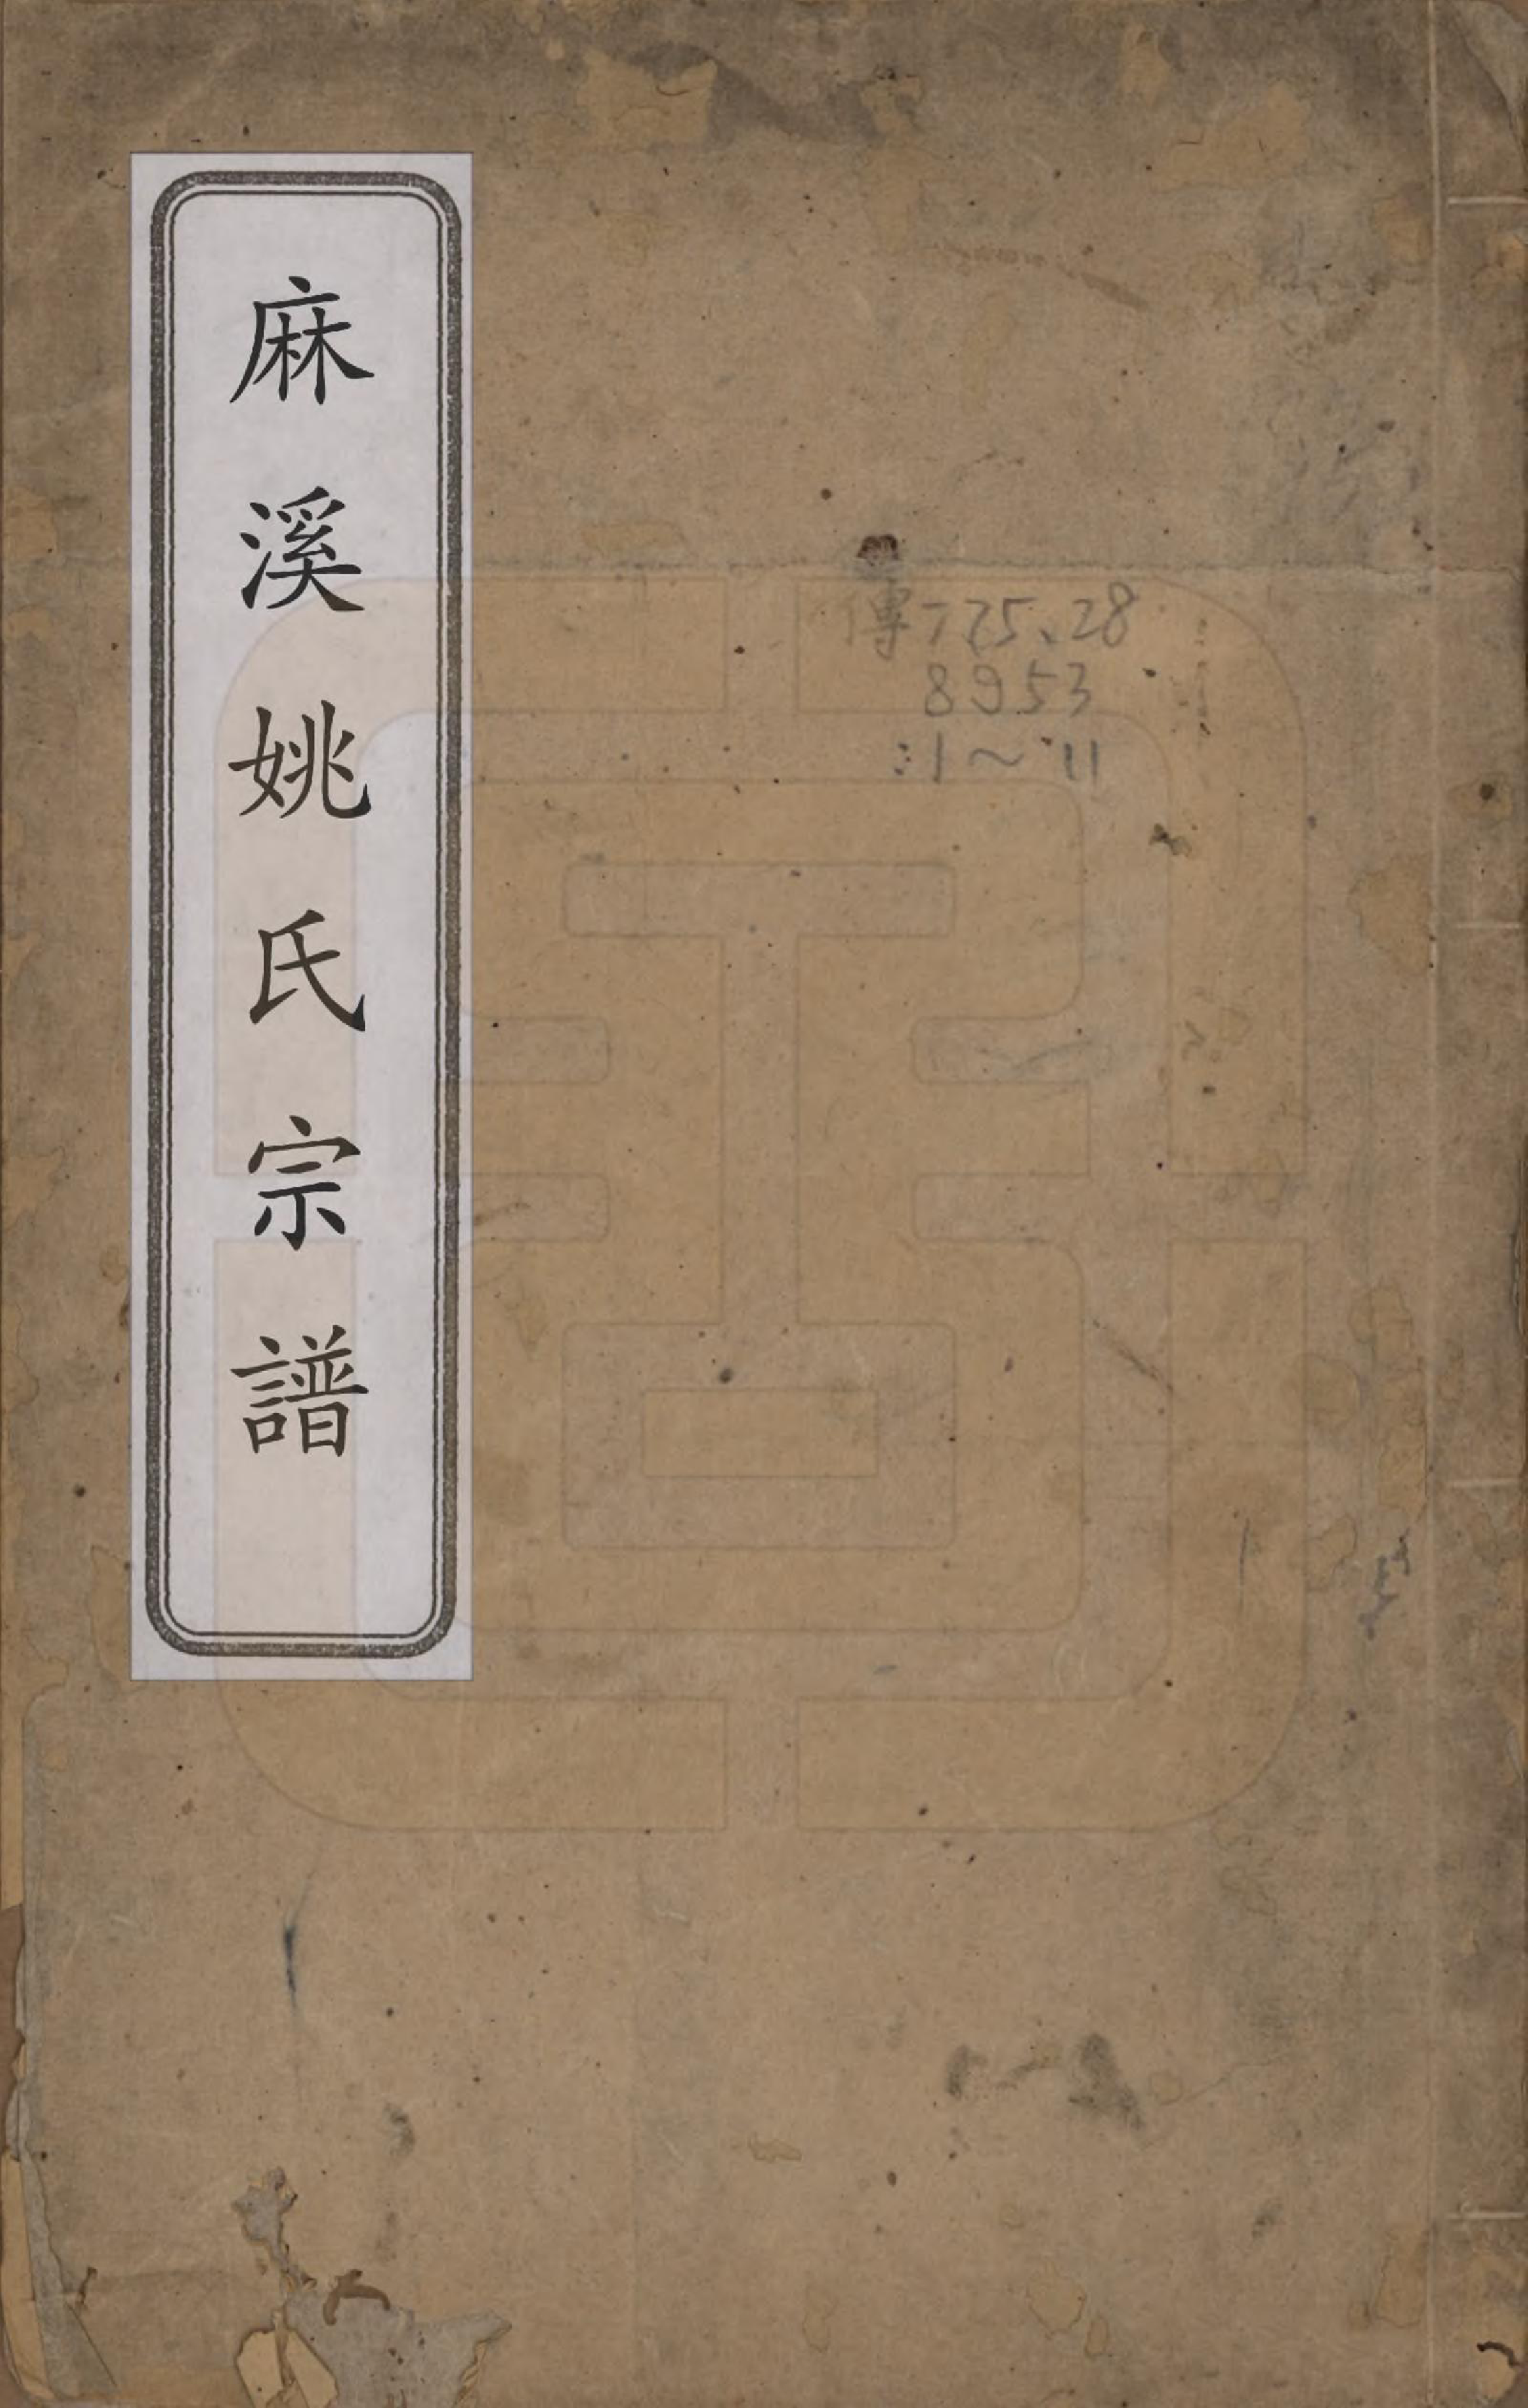 麻溪姚氏宗譜
傳775.28
8953
:1～11